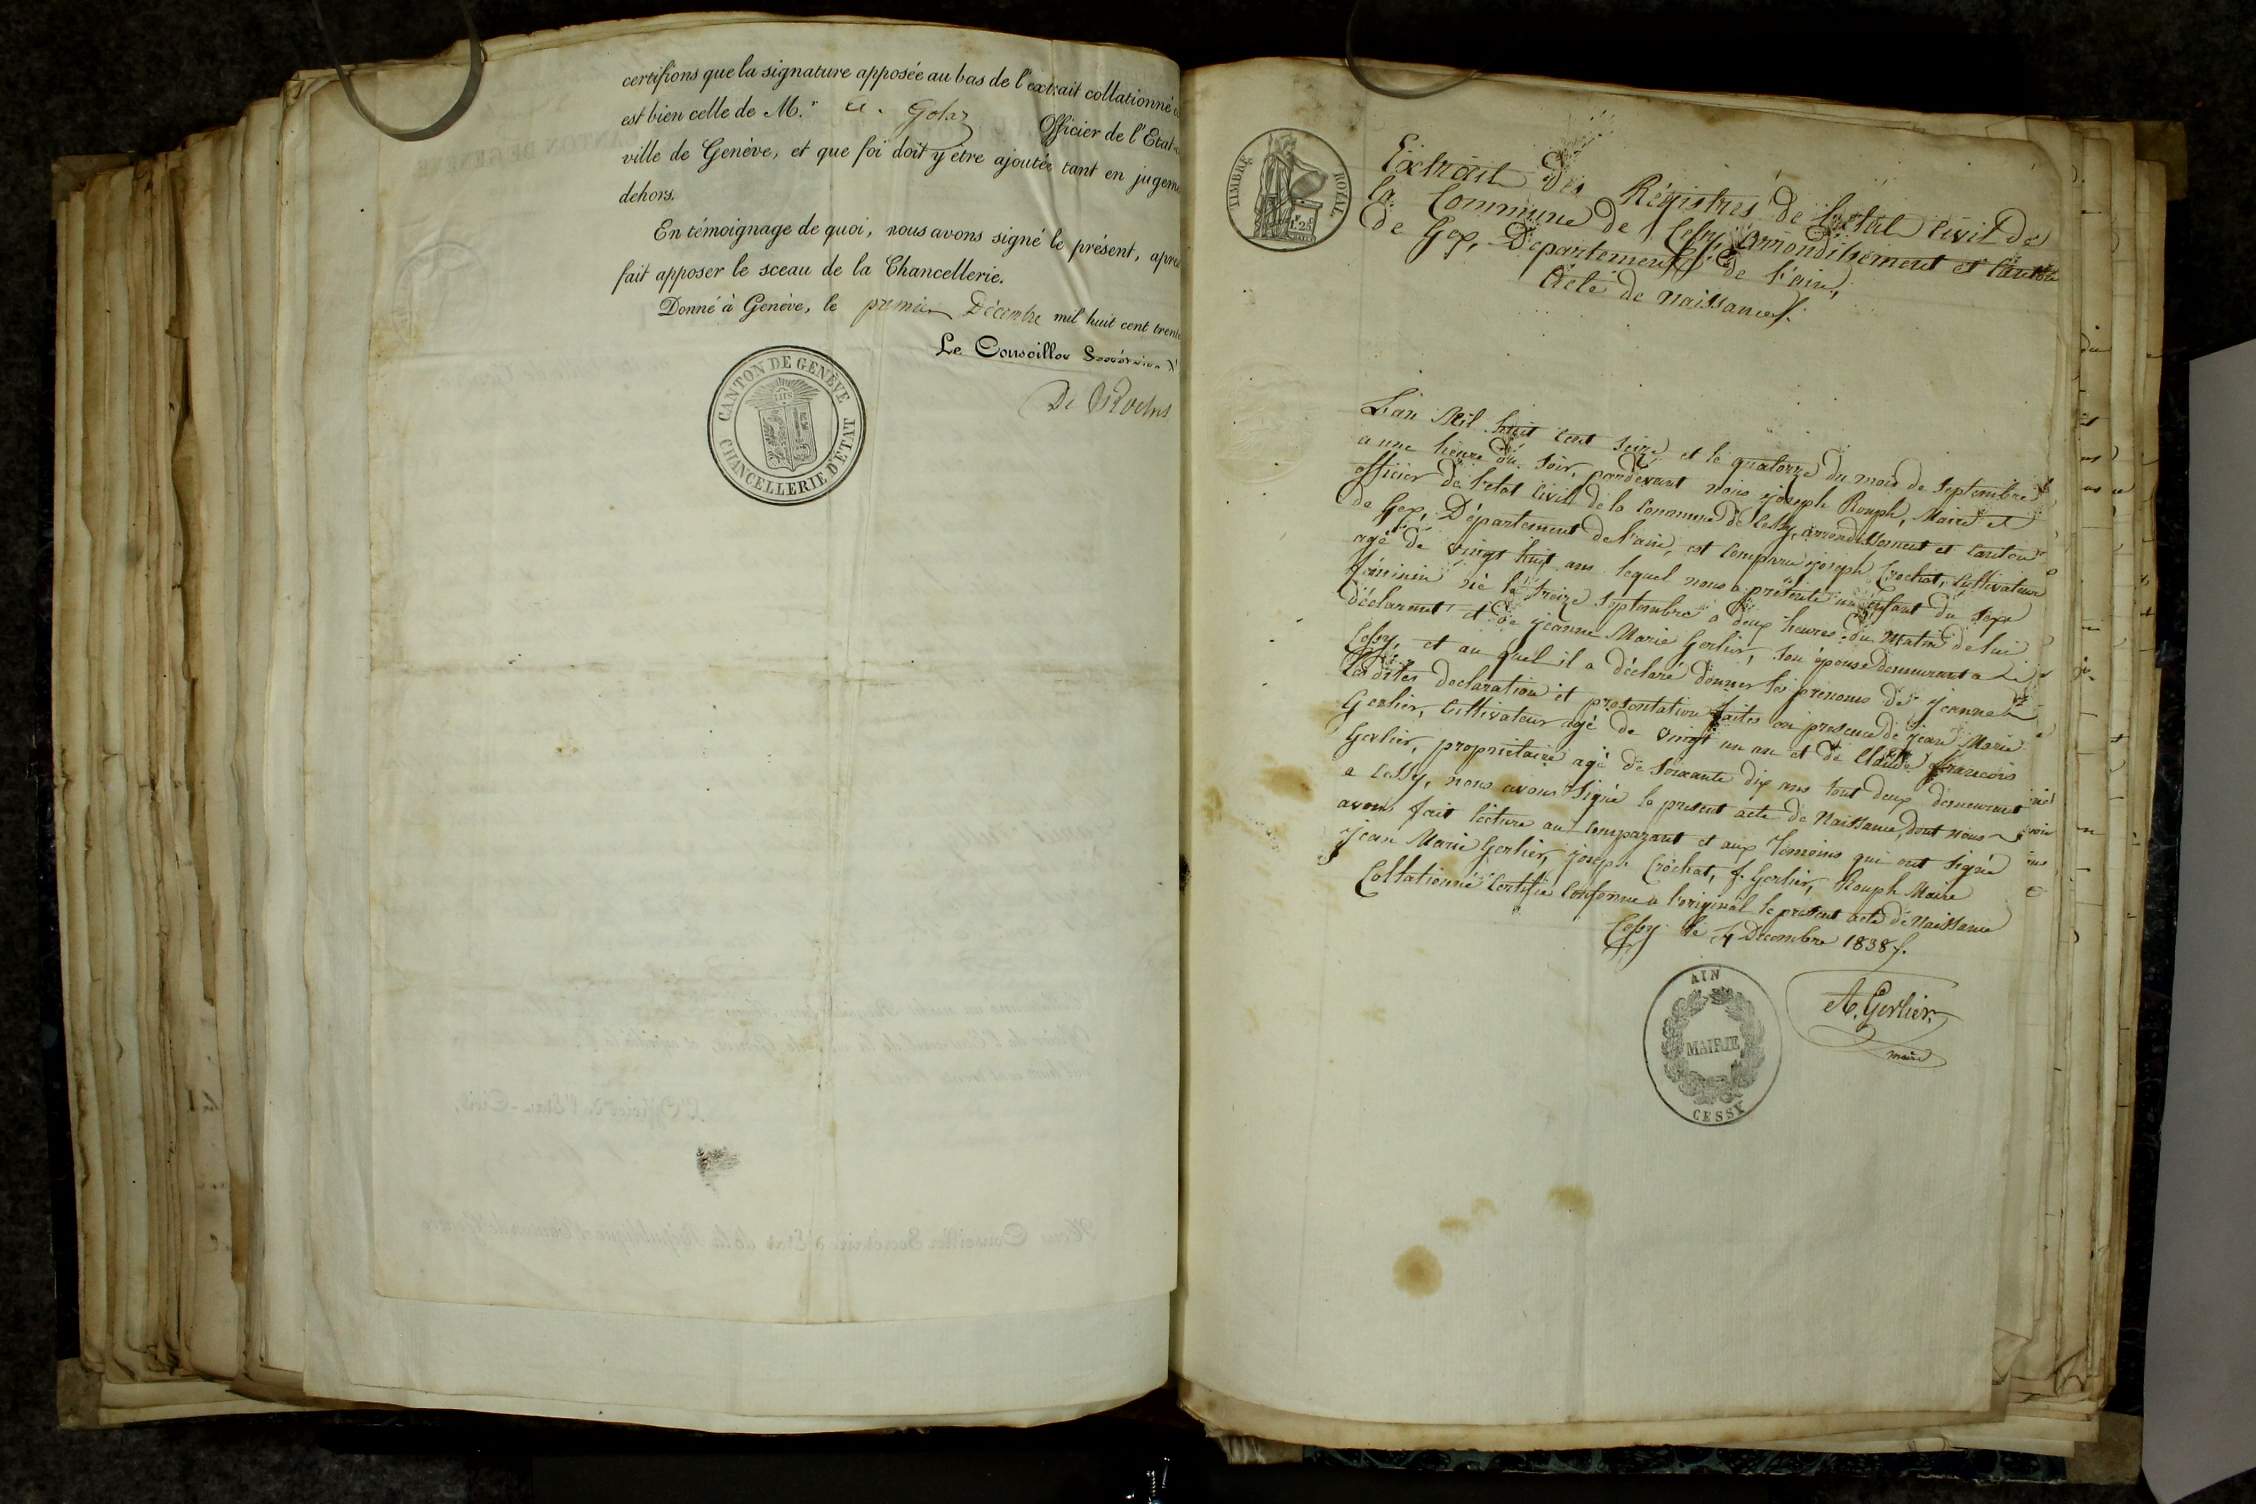 certifions que la signature apposée au bas de l'extrait collationné
est bien celle de M.r A. Golaz Officier de l'Etat
ville de Genève, et que foi doit y être ajoutée tant en jugem
dehors.
En témoignage de quoi, nous avons signé le présent, après
fait apposer le sceau de la Chancellerie.
Donné à Genève, le premier Décembre mil huit cent trente
Le Conseiller Secrétaire
De Roches
CANTON DE GENÈVE
CHANCELLERIE D'ETAT
TIMBRE ROYAL
1. 25
Extrait des Régistres de l'etat civil de
la Commune de Cessy, arrondissement et Canton
de Gex, Departement de l'ain,
Acte de Naissance.
L'an Mil huit cent seize et le quatorze du mois de septembre
a une heure du soir, pardevant nous joseph Rouph, Maire et
officier de l'etat Civil de la Commune de Cessy, arrondissement et Canton
de Gex, Département de l'ain, est comparu joseph Crochat, Cultivateur
agé de vingt huit ans lequel nous a présenté un enfant du sexe
féminin né le treize septembre a deux heures du matin de lui
déclarant et de jeanne Marie Gerlier, son épouse demeurant a
Cessy, et au quel il a déclaré donner les prénoms de jeanne
Les dites declaration et presentation faites en presence de jean Marie
Gerlier, Cultivateur agé de vingt un an et de Claude francois
Gerlier, propriétaire agé de soixante dix ans tout deux demeurant
a Cessy, nous avons signé le present acte de Naissance, dont nous
avons fait lecture au comparant et aux temoins qui ont signé
jean Marie Gerlier, joseph Crochat, f. Gerlier, Rouph Maire
Collationné Certifié Conforme a l'original le présent acte de Naissance
Cessy le 4 Decembre 1838.
A. Gerlier
maire
AIN
MAIRIE
CESSY